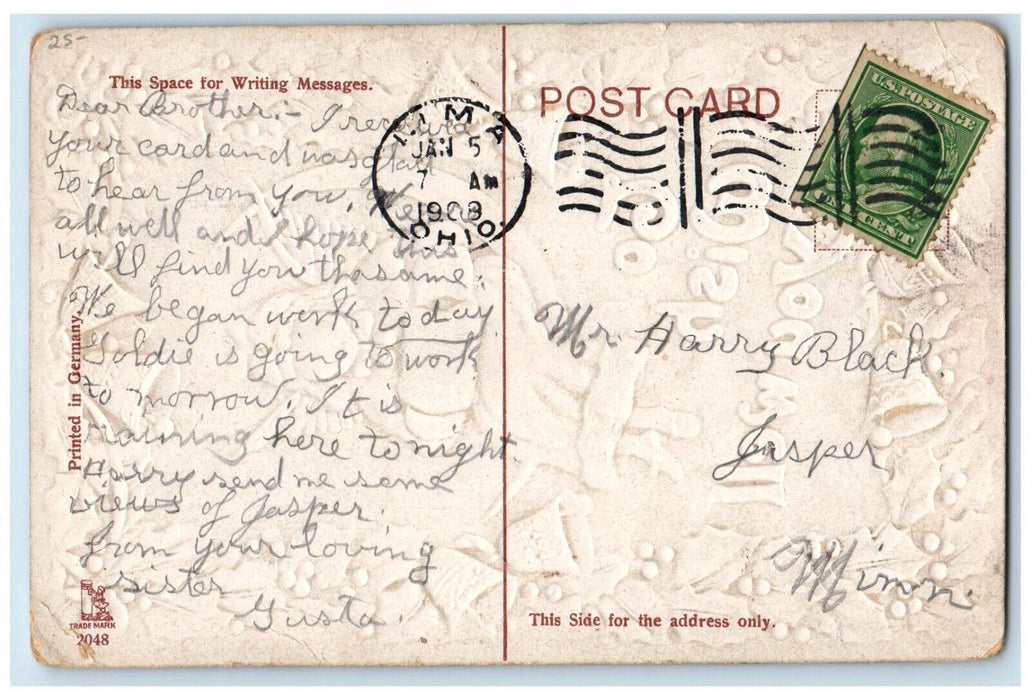 25-
This Space for Writing Messages.
Dear Brother:- I received
your card and was glad
to hear from you. We are
all well and hope this
will find you the same.
We began work today
Goldie is going to work
to morrow. It is
raining here tonight.
Harry send me some
views of Jasper.
from your loving
sister
Gusta.
Printed in Germany.
TRADE MARK
2048
POST CARD
LIMA
JAN 5
7 AM
OHIO
U.S. POSTAGE
ONE CENT
Mr Harry Black.
Jasper
Minn.
This Side for the address only.